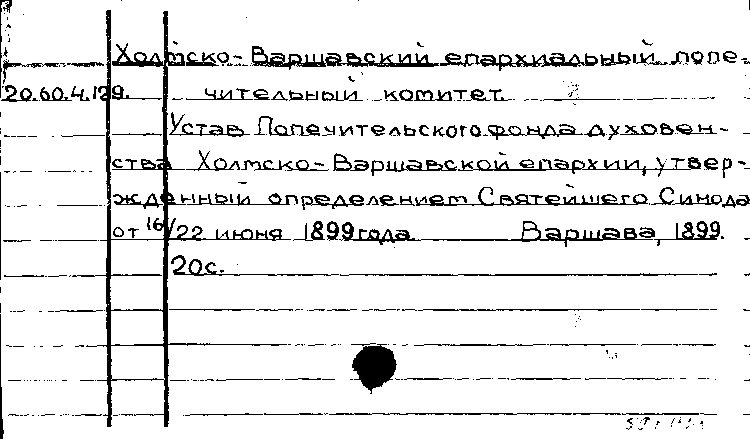 Холмско-Варшавский епархиальный попе-
20.60.4.129. чительный комитет.
Устав Попечительского фонда духовен-
ства Холмско-Варшавской епархии, утвер-
жденный определением Святейшего Синода
от 16/22 июня 1899 года. Варшава, 1899.
20с.